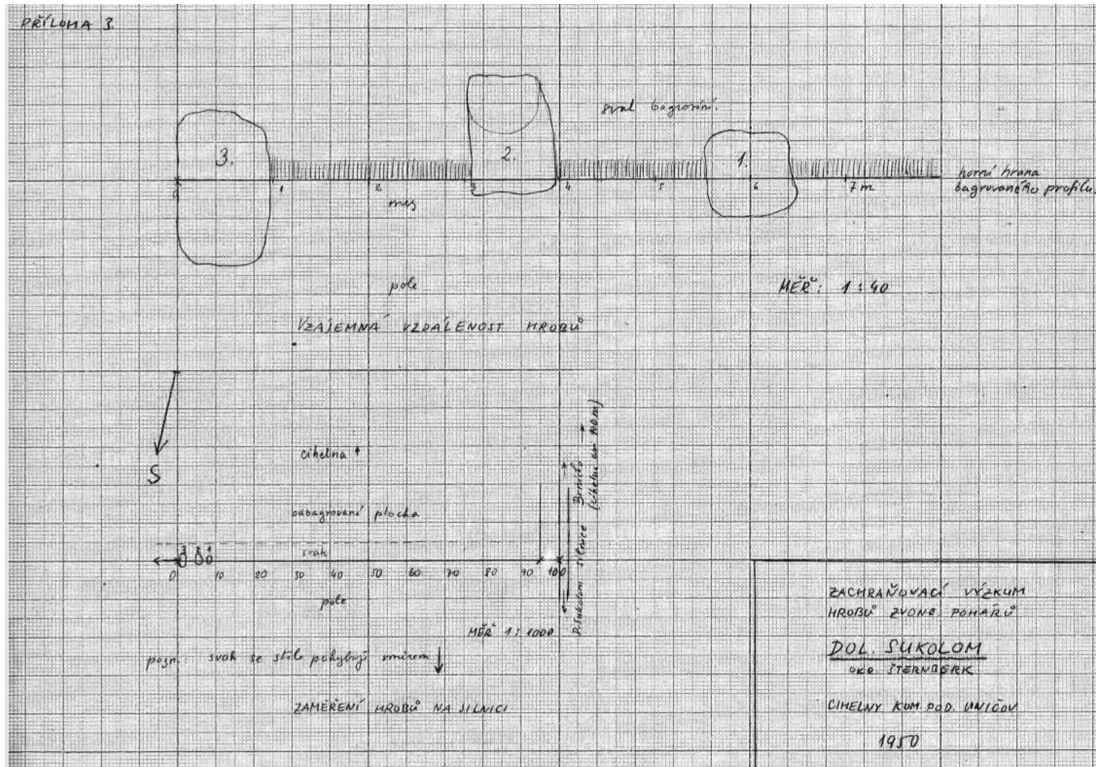 PŘÍLOHA 3.
sval bagrování.
3.
2.
1.
0 1 2 3 4 5 6 7 m
horní hrana
bagrovaného profilu.
mez
pole
MĚŘ: 1:40
VZÁJEMNÁ VZDÁLENOST HROBŮ
S
cihelna
odbagrovaná plocha
svah
3 2 1
0 10 20 30 40 50 60 70 80 90 100
pole
D. Sukolom silnice Brníčko
(cihelna asi 110 m)
MĚŘ 1:1000
pozn. svah se stále pohybuje směrem
ZAMĚŘENÍ HROBŮ NA SILNICI
ZACHRAŇOVACÍ VÝZKUM
HROBŮ ZVONC. POHÁRŮ
DOL. SUKOLOM
OKR. ŠTERNBERK
CIHELNY KOM. POD. UNIČOV
1950